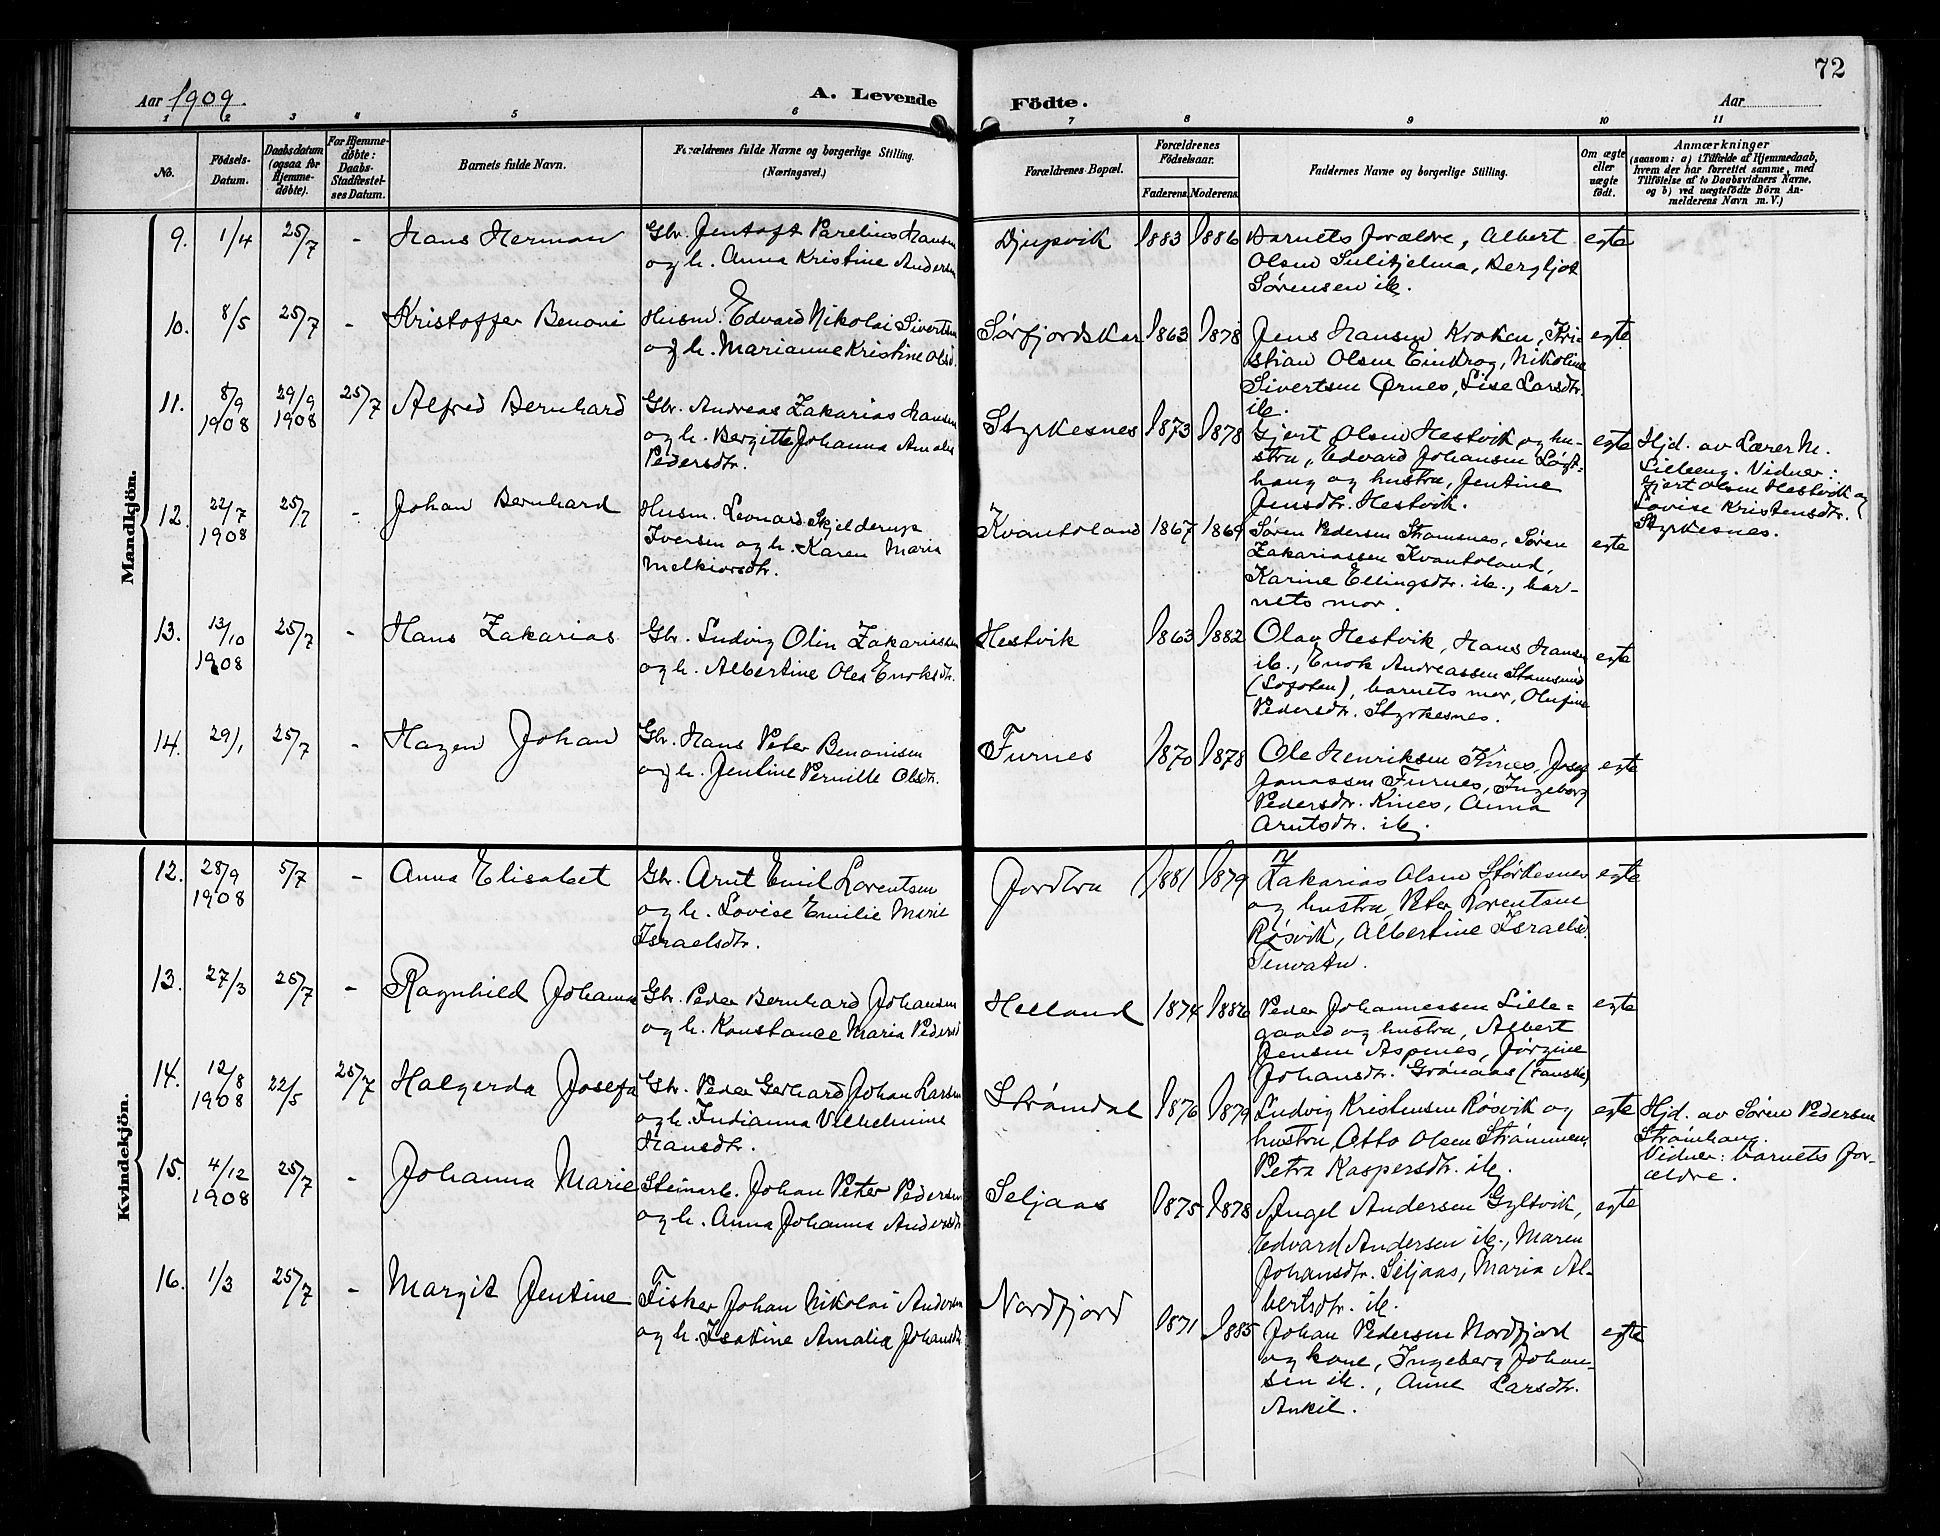 72
Aar 1909.
A. Levende Födte.
Aar
1 2 3 4 5 6 7 8 9 10 11
No.
Födsels-Datum.
Daabsdatum (ogsaa for Hjemme-döbte).
For Hjemme-döbte: Daabs-Stadfæstel-ses Datum.
Barnets fulde Navn.
Forældrenes fulde Navne og borgerlige Stilling. (Næringsvei.)
Forældrenes Bopæl.
Forældrenes Födselsaar.
Faderens. Moderens.
Faddernes Navne og borgerlige Stilling.
Om ægte eller uægte födt.
Anmærkninger
(saasom: a) i Tilfælde af Hjemmedaab, hvem der har forrettet samme, med Tilföielse af to Daabsvidners Navne, og b) ved uægtefödte Börn An-melderens Navn m. V.)
Mandkjön.
9. 1/4 25/7 - Hans Herman
Gbr. Jentoft Parelius Hansen
og h. Anna Kristine Andersen
Djupvik 1883 1886
Barnets forældre, Albert
Olsen Sulitjelma, Bergljot
Sørensen ib.
egte
10. 8/5 25/7 - Kristoffer Benoni
Husm. Edvard Nikolai Sivertsen
og h. Marianne Kristine Olsd.
Sørfjordskar 1863 1878
Jens Hansen Kroken, Kri-
stian Olsen Eindrog, Nikoline
Sivertsen Ørnes, Lise Larsdtr.
ib.
egte
11. 8/9 1908 29/9 1908 25/7 Alfred Bernhard
Gbr. Andreas Zakarias Hansen
og h. Bergitte Johanna Amalie
Pedersdtr.
Styrkesnes 1873 1878
Gjert Olsen Hestvik og hu-
stru, Edvard Johansen Løgt-
haug og hustru, Jentine
Jensdtr. Hestvik.
egte
Hjd. av Lærer M.
Lilleeng. Vidner:
Gjert Olsen Hestvik og
Lovise Kristensdtr.
Styrkesnes.
12. 22/7 1908 25/7 - Johan Bernhard
Husm. Leonard Skjelderup
Iversen og h. Karen Maria
Melkiorsdtr.
Kvantoland 1867 1869
Søren Pedersen Strømsnes, Søren
Zakariassen Kvantoland,
Karine Ellingsdtr. ib., bar-
nets mor.
egte
13. 13/10 1908 25/7 - Hans Zakarias
Gbr. Ludvig Olin Zakariassen
og h. Albertine Olea Enoksdtr.
Hestvik 1863 1882
Olav Hestvik, Hans Hansen
ib., Enok Andreassen Stamsund
(Lofoten), barnets mor, Olufine
Pedersdtr. Styrkesnes.
egte
14. 29/1 25/7 - Hagen Johan
Gbr. Hans Peter Benonisen
og h. Jentine Pernille Olsdtr.
Furnes 1870 1878
Ole Henriksen Kines, Josef
Jonassen Furnes, Ingeborg
Pedersdtr. Kines, Anna
Arntsdtr. ib.
egte
Kvindekjön.
12. 28/9 1908 5/7 - Anna Elisabet
Gbr. Arnt Emil Lorentsen
og h. Lovise Emilie Marie
Israelsdtr.
Jordbru 1881 1879
Zakarias Olsen Størkesnes
og hustru, Peter Lorentsen
Røsvik, Albertine Israelsd.
Tenvatn.
egte
13. 27/3 25/7 - Ragnhild Johanna
Gbr. Peder Bernhard Johansen
og h. Konstance Maria Pedersd
Helland 1874 1886
Peder Johannessen Lille-
gaard og hustru, Albert
Jensen Aspenes, Jørgine
Johansdtr. Grønaas (Fauske)
egte
14. 12/8 1908 22/5 25/7 Halgerda Josefa
Gbr. Peder Gerhard Johan Larsen
og h. Indianna Vilhelmine
Hansdtr.
Strømdal 1876 1879
Ludvig Kristensen Røsvik og
hustru, Otto Olsen Strømmen,
Petra Kaspersdtr. ib.
egte
Hjd. av Søren Pedersen
Strømhaug.
Vidner: barnets for-
ældre.
15. 4/12 1908 25/7 - Johanna Marie
Steinarb. Johan Peter Pedersen
og h. Anna Johanna Andersdtr
Seljaas 1875 1878
Angel Andersen Gyltvik,
Edvard Andersen ib., Maren
Johansdtr. Seljaas, Maria Al-
bertsdtr. ib.
egte
16. 1/3 25/7 - Margit Jentine
Fisker Johan Nikolai Andersen
og h. Isakine Amalia Johansdtr
Nordfjord 1871 1885
Johan Pedersen Nordfjord
og kone, Ingeborg Johan-
sen ib., Anne Larsdtr.
Ankil.
egte